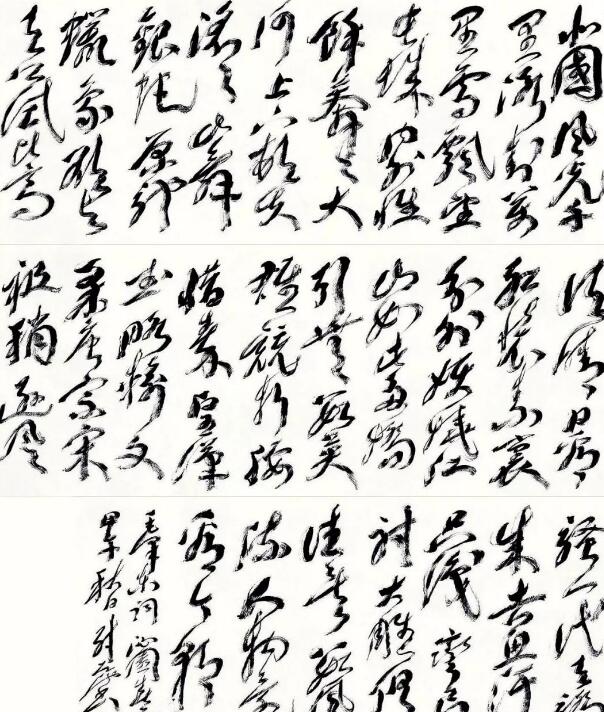 北國風光千
里冰封萬
里雪飄望
長城內外惟
餘莽莽大
河上下頓失
滔滔山舞
銀蛇原馳
蠟象欲與
天公試比高
須晴日看
紅裝素裹
分外妖嬈江
山如此多嬌
引無數英
雄競折腰
惜秦皇漢
武略輸文
采唐宗宋
祖稍遜風
騷一代天驕
成吉思汗
只識彎弓
射大雕俱
往矣數風
流人物還
看今朝
毛澤東詞沁園春
甲午秋日